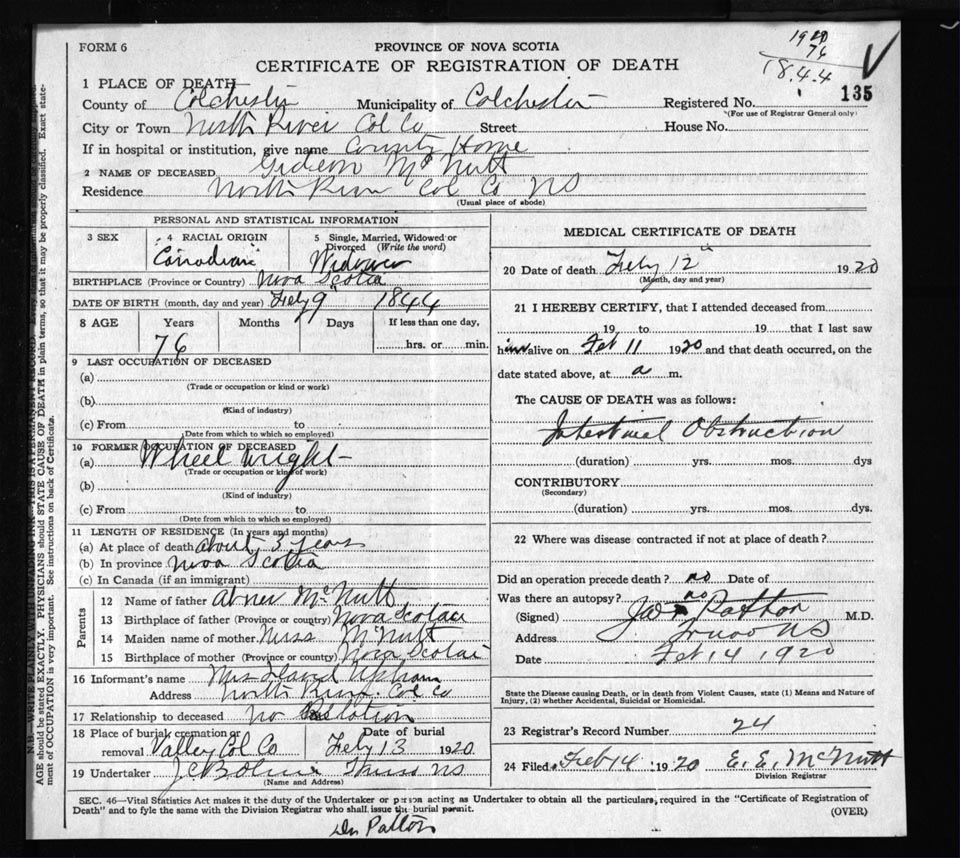 FORM 6
PROVINCE OF NOVA SCOTIA
CERTIFICATE OF REGISTRATION OF DEATH
1920
76
18.4.4
135
1 PLACE OF DEATH
County of Colchester Municipality of Colchester Registered No.
(For use of Registrar General only)
City or Town North River Col Co Street House No.
If in hospital or institution, give name County Home
2 NAME OF DECEASED Gideon McNutt
Residence North River Col Co NS
(Usual place of abode)
PERSONAL AND STATISTICAL INFORMATION
3 SEX 4 RACIAL ORIGIN 5 Single, Married, Widowed or Divorced (Write the word)
Canadian Widower
BIRTHPLACE (Province or Country) Nova Scotia
DATE OF BIRTH (month, day and year) Feby 9" 1844
8 AGE Years Months Days If less than one day,
76 hrs. or min.
9 LAST OCCUPATION OF DECEASED
(a)
(Trade or occupation or kind or work)
(b)
(Kind of industry)
(c) From to
(Date from which to which so employed)
10 FORMER OCCUPATION OF DECEASED
(a) Wheel wright
(Trade or occupation or kind of work)
(b)
(Kind of industry)
(c) From to
(Date from which to which so employed)
11 LENGTH OF RESIDENCE (In years and months)
(a) At place of death about 3 years
(b) In province Nova Scotia
(c) In Canada (if an immigrant)
Parents
12 Name of father Abner McNutt
13 Birthplace of father (Province or country) Nova Scotia
14 Maiden name of mother Miss McNutt
15 Birthplace of mother (Province or country) Nova Scotia
16 Informant's name Mrs Upham
Address North River Col Co
17 Relationship to deceased no Relation
18 Place of burial, cremation or removal Valley Col Co Date of burial Feby 13 1920
19 Undertaker Truro NS
(Name and Address)
MEDICAL CERTIFICATE OF DEATH
20 Date of death Feby 12" 1920
(Month, day and year)
21 I HEREBY CERTIFY, that I attended deceased from
19 to 19 that I last saw
him alive on Feb 11 1920 and that death occurred, on the
date stated above, at a m.
The CAUSE OF DEATH was as follows:
Intestinal Obstruction
(duration) yrs. mos. dys
CONTRIBUTORY
(Secondary)
(duration) yrs. mos. dys.
22 Where was disease contracted if not at place of death?
Did an operation precede death? no Date of
Was there an autopsy? no
(Signed) Patton M.D.
Address Truro NS
Date Feb 14 1920
State the Disease causing Death, or in death from Violent Causes, state (1) Means and Nature of
Injury, (2) whether Accidental, Suicidal or Homicidal.
23 Registrar's Record Number 24
24 Filed Feb 14 1920 E. E. McNutt
Division Registrar
SEC. 46—Vital Statistics Act makes it the duty of the Undertaker or person acting as Undertaker to obtain all the particulars, required in the "Certificate of Registration of
Death" and to fyle the same with the Division Registrar who shall issue the burial permit.
(OVER)
Dr Patton
AGE should be stated EXACTLY. PHYSICIANS should STATE CAUSE OF DEATH in plain terms, so that it may be properly classified. Exact state-
ment of OCCUPATION is very important. See instructions on back of Certificate.